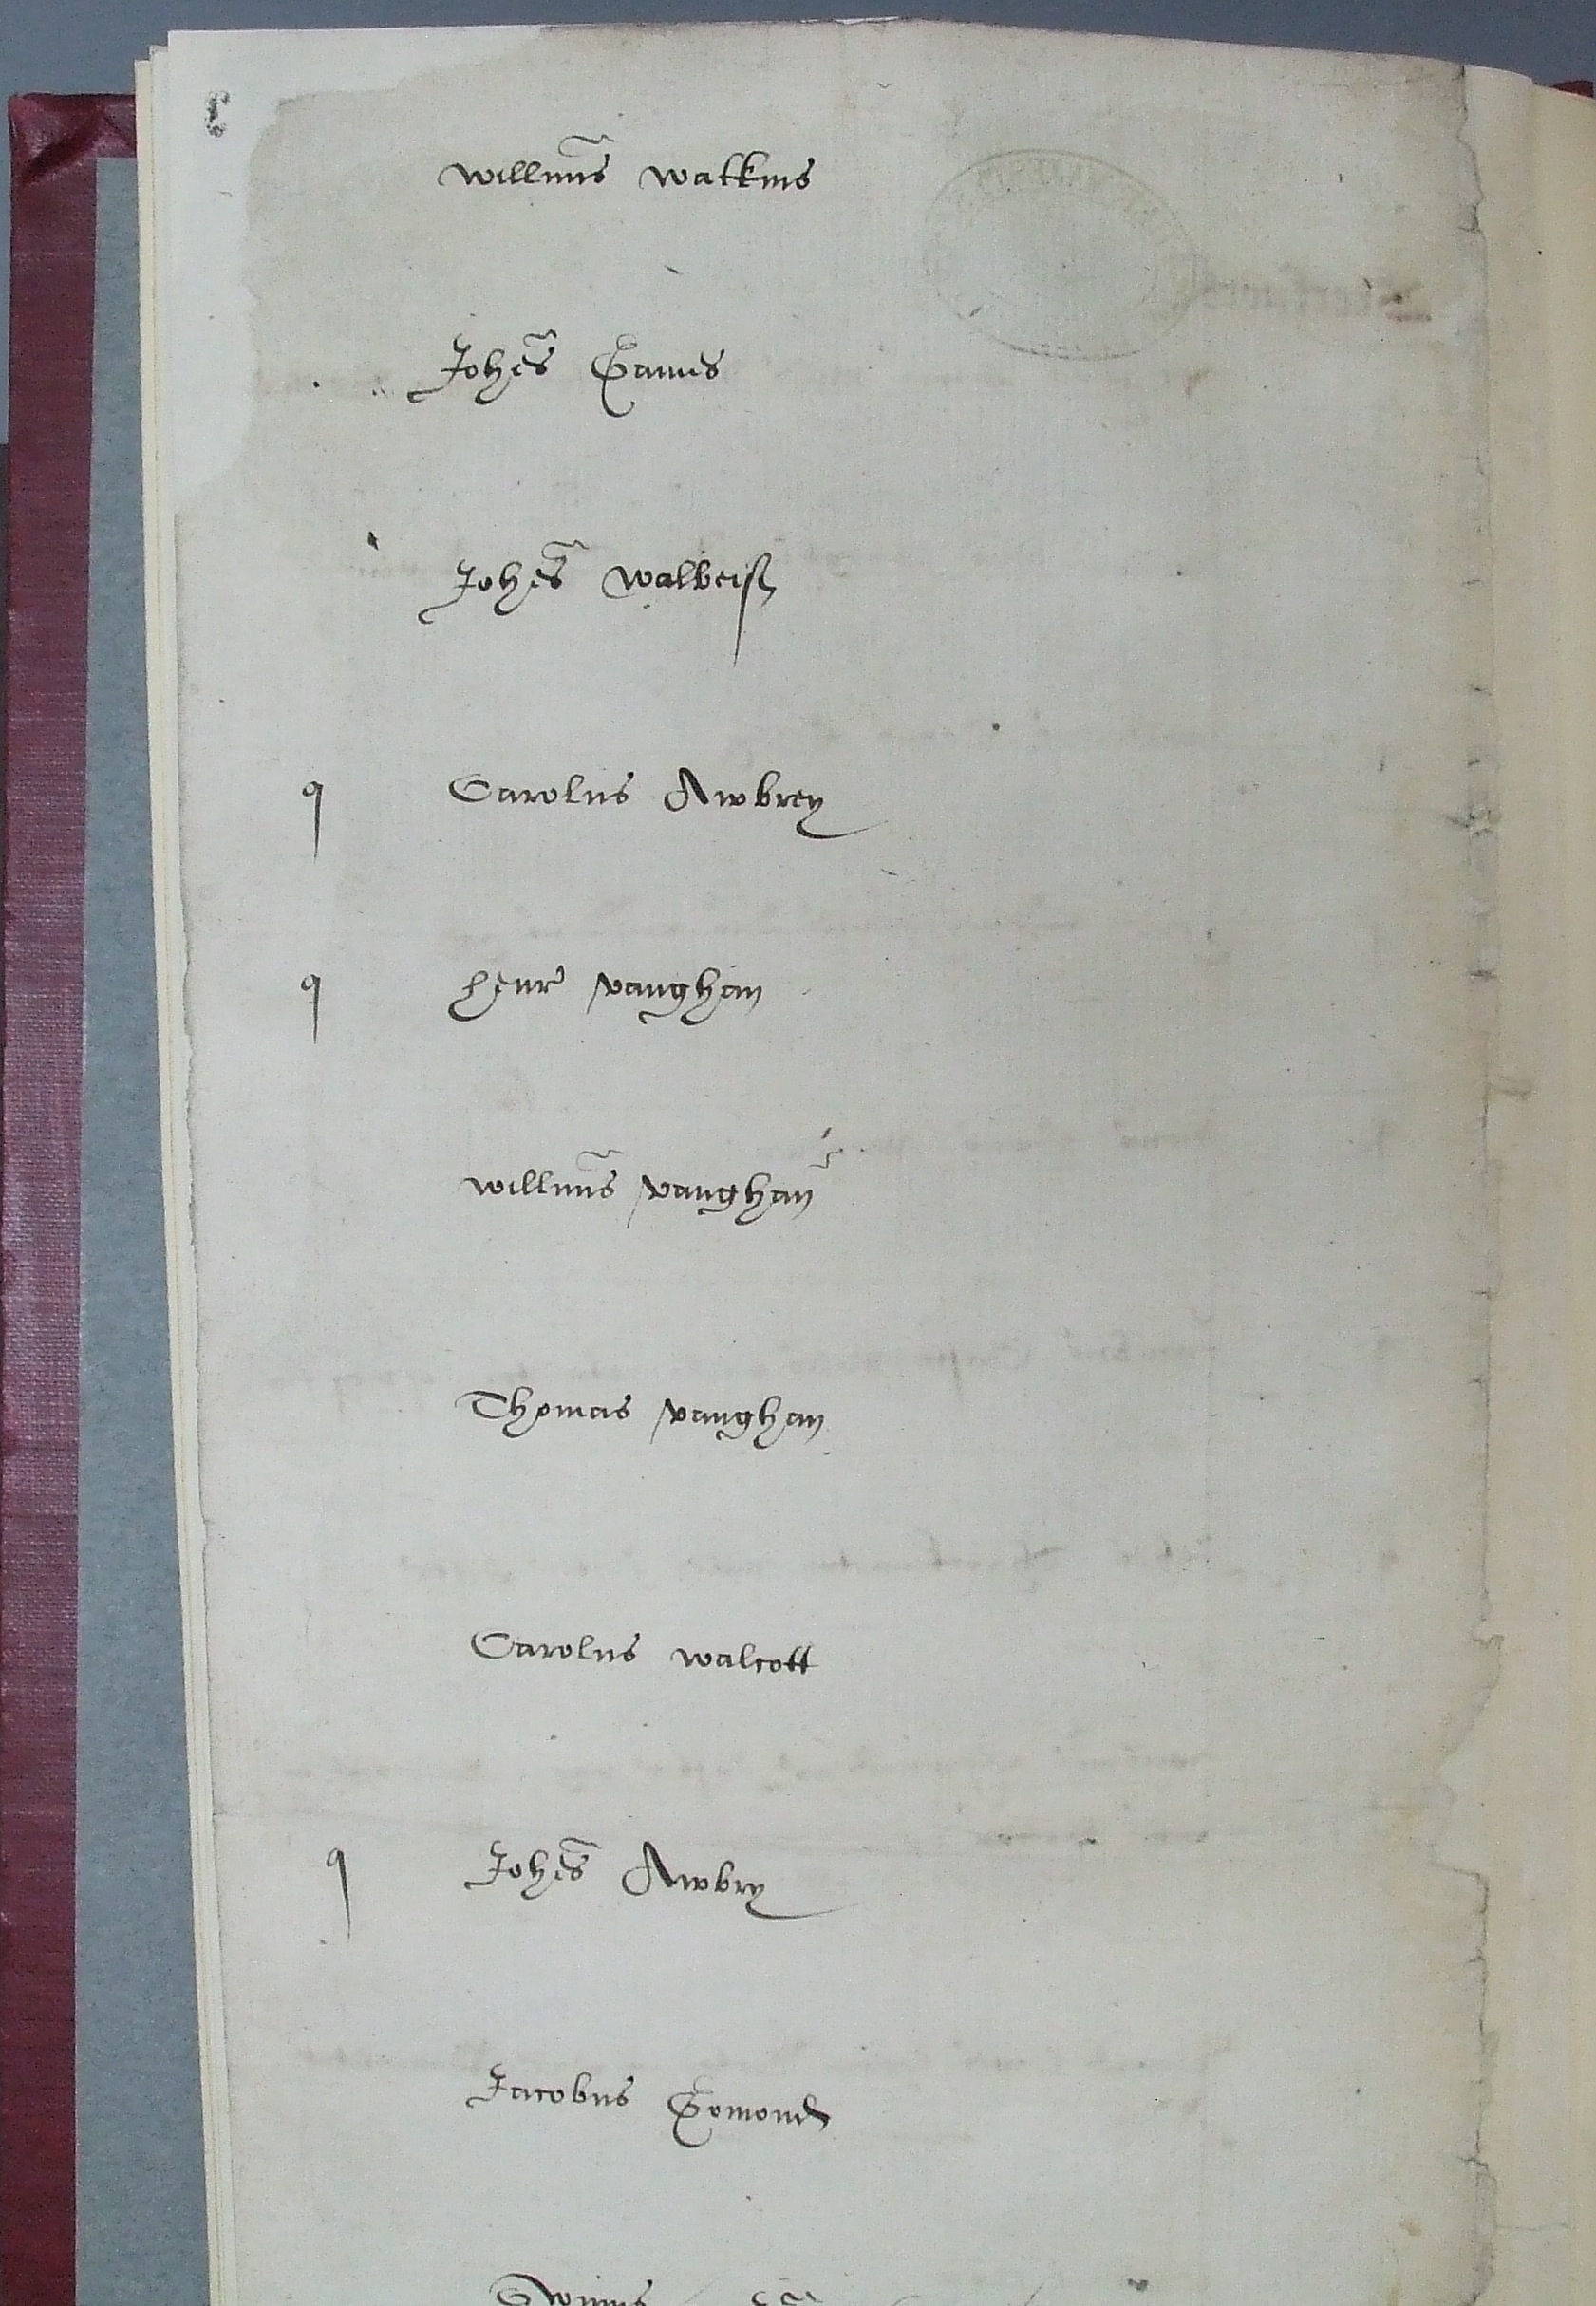 willm̃s watkins
Johẽs Games
Johẽs walbeiff
q Carolus Awbrey
q henr vaughan
willm̃s vaughan
Thomas vaughan
Carolus walcott
q Johẽs Awbry
Jacobus Gomond